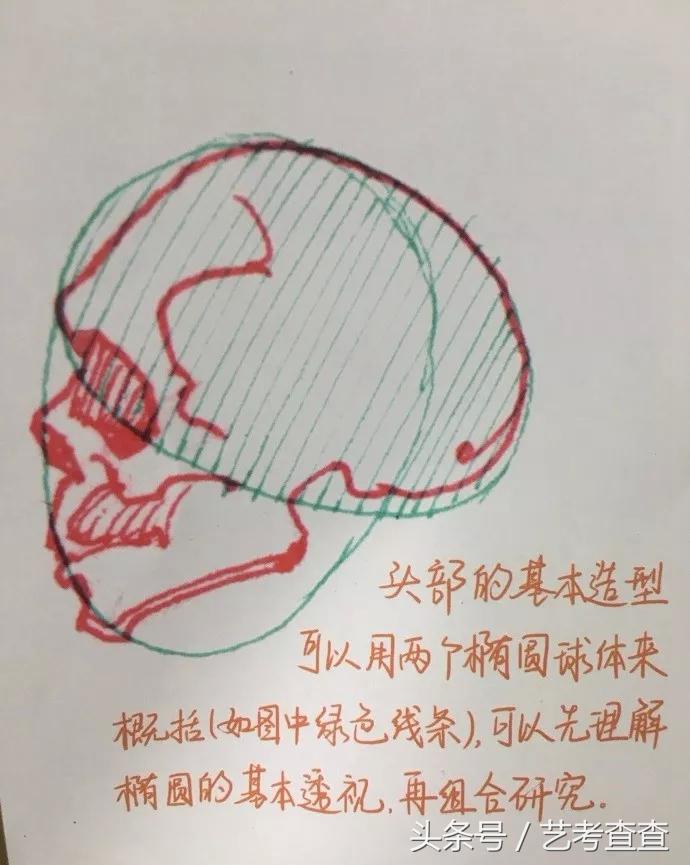 头部的基本造型
可以用两个椭圆球体来
概括(如图中绿色线条),可以先理解
椭圆的基本透视,再组合研究.
头条号 / 艺考查查